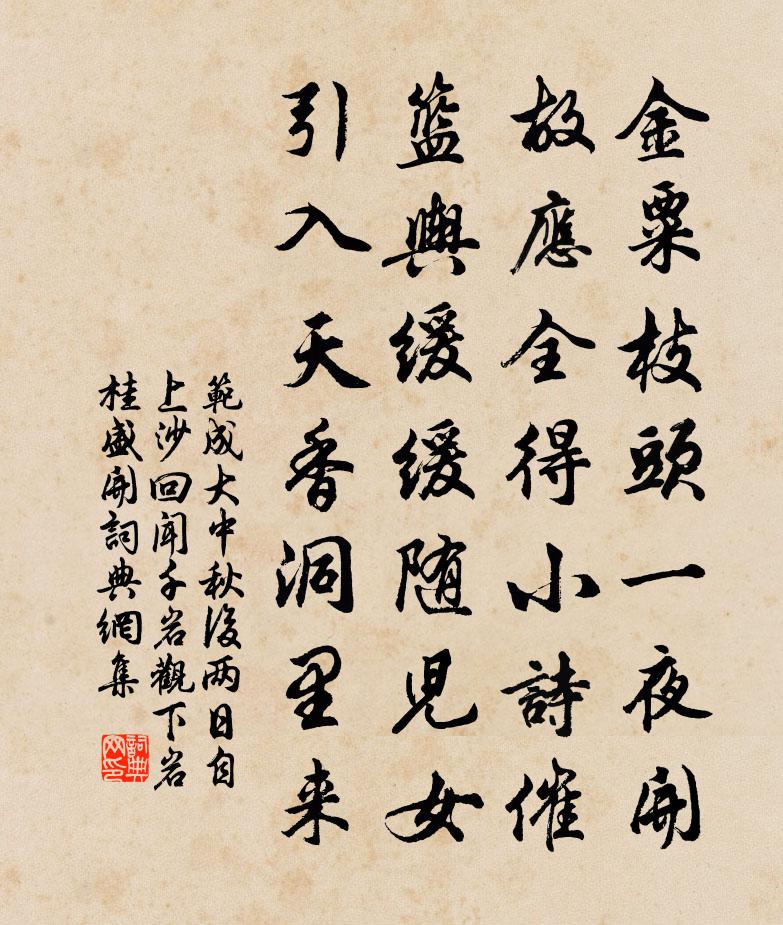 金粟枝頭一夜開
故應全得小詩催
籃輿緩緩随兒女
引入天香洞里来
範成大中秋後两日自
上沙回聞千岩觀下岩
桂盛開詞典網集
詞典网印